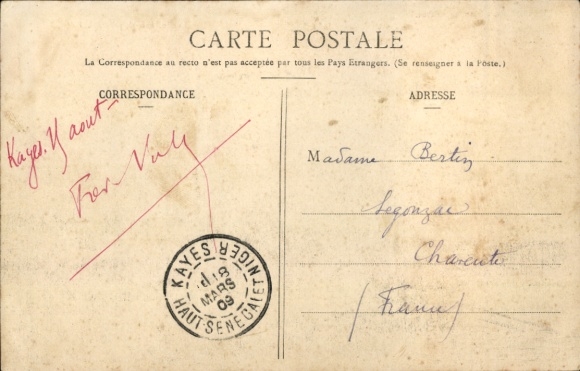 CARTE POSTALE
La Correspondance au recto n'est pas acceptée par tous les Pays Etrangers. (Se renseigner à la Poste.)
CORRESPONDANCE
Kayes. aout
KAYES
18
MARS
09
HAUT-SENEGAL ET NIGER
ADRESSE
Madame Bertin
Segonzac
Charente
(France)